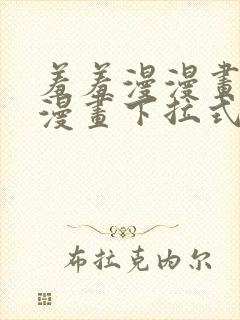 羞羞漫漫畫
漫畫下拉式
布拉克內尔